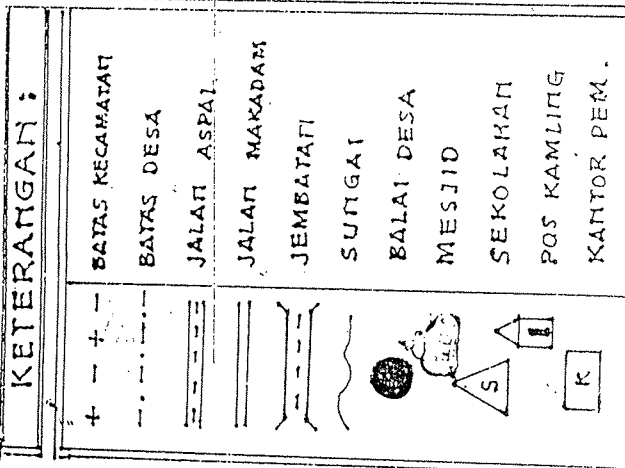 KETERANGAN :
BATAS KECAMATAN
BATAS DESA
JALAN ASPAL
JALAN MAKADAM
JEMBATAN
SUNGAI
BALAI DESA
MESJID
S SEKOLAHAN
POS KAMLING
K KANTOR PEM.